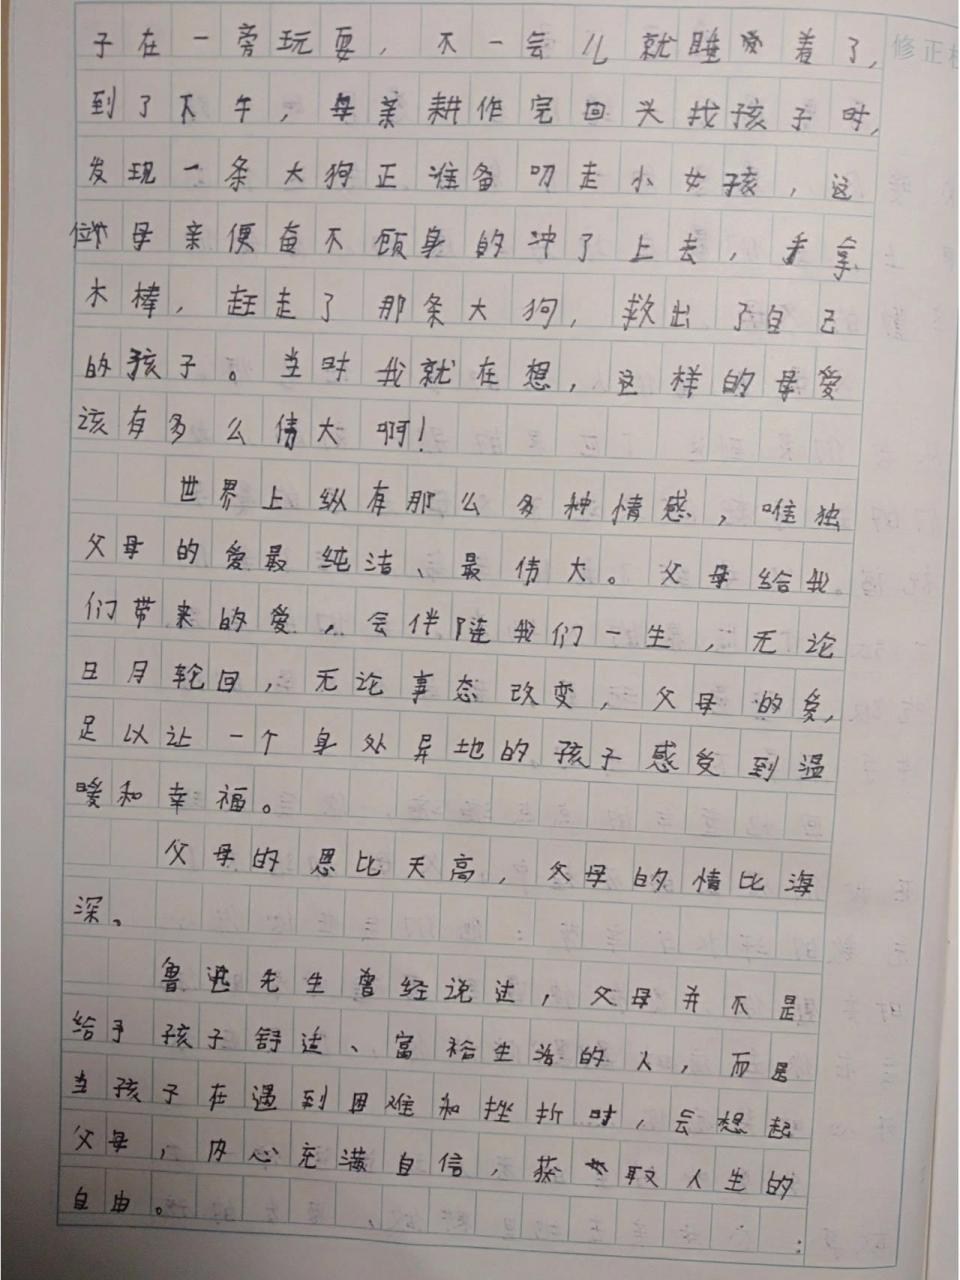 子在一旁玩耍，不一会儿就睡着了，
到了下午，母亲耕作完回头找孩子时，
发现一条大狗正准备叨走小女孩，这
位母亲便奋不顾身的冲了上去，手拿
木棒，赶走了那条大狗，救出了自己
的孩子。当时我就在想，这样的母爱
该有多么伟大啊！
世界上纵有那么多种情感，唯独
父母的爱最纯洁、最伟大。父母给我
们带来的爱，会伴随我们一生，无论
日月轮回，无论事态改变，父母的爱，
足以让一个身处异地的孩子感受到温
暖和幸福。
父母的恩比天高，父母的情比海
深。
鲁迅先生曾经说过，父母并不是
给予孩子舒适、富裕生活的人，而是
当孩子在遇到困难和挫折时，会想起
父母，内心充满自信，获取人生的
自由。
修正